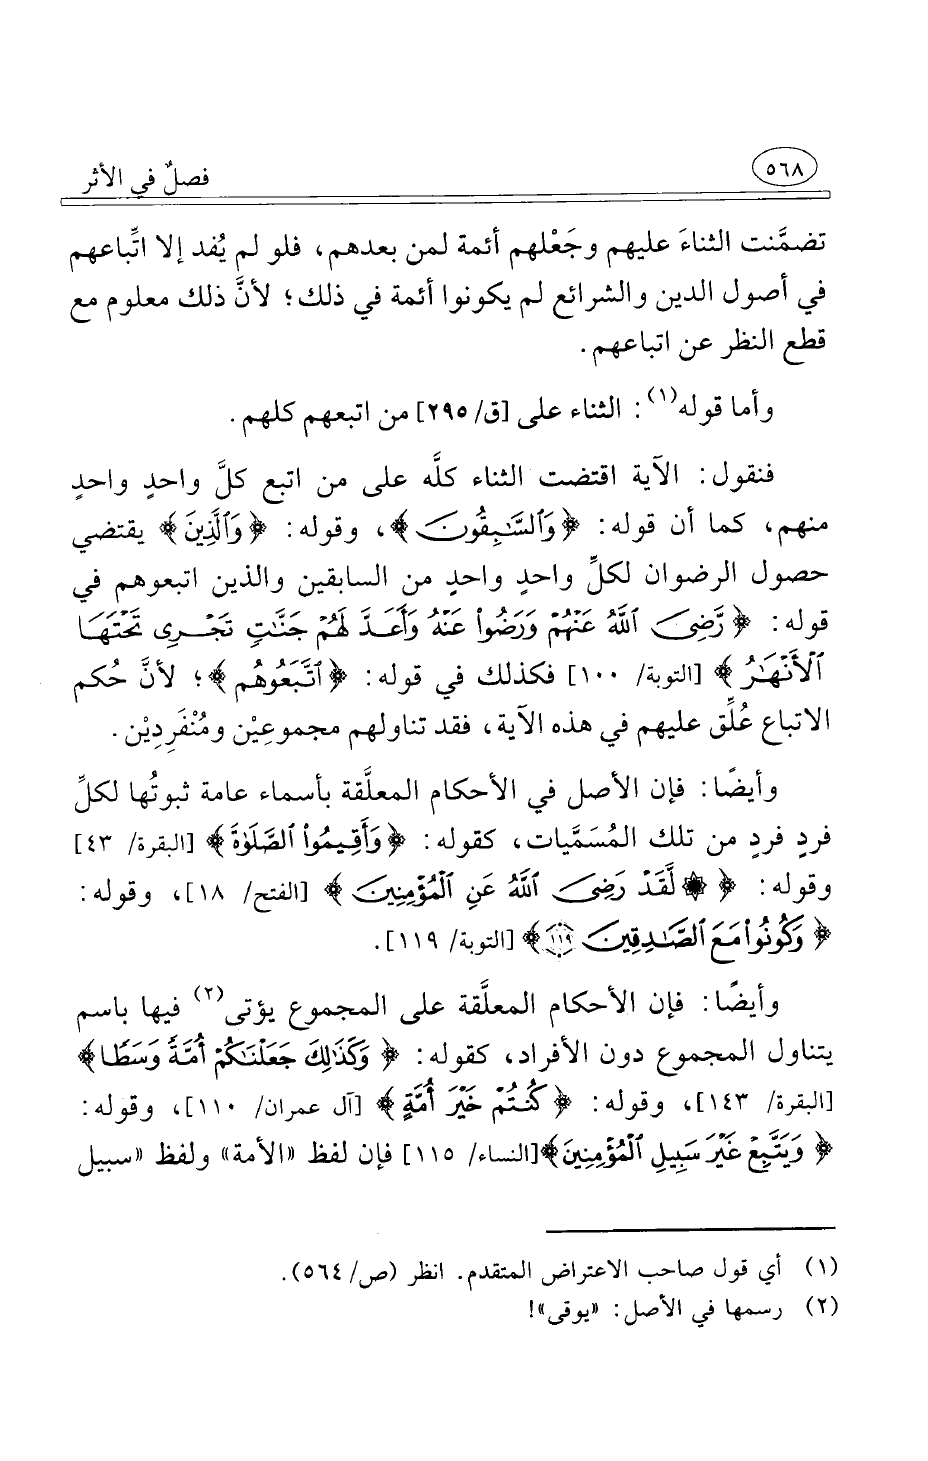 ٥٦٨
فصلٌ في الأثر
تضمَّنت الثناءَ عليهم وجَعْلهم أئمة لمن بعدهم، فلو لم يُفد إلا اتِّباعهم
في أصول الدين والشرائع لم يكونوا أئمة في ذلك؛ لأنَّ ذلك معلوم مع
قطع النظر عن اتباعهم.
وأما قوله(١): الثناء على [ق/ ٢٩٥] من اتبعهم كلهم.
فنقول: الآية اقتضت الثناء كلَّه على من اتبع كلَّ واحدٍ واحدٍ
منهم، كما أن قوله: ﴿وَٱلسَّٰبِقُونَ﴾، وقوله: ﴿وَٱلَّذِينَ﴾ يقتضي
حصول الرضوان لكلِّ واحدٍ واحدٍ من السابقين والذين اتبعوهم في
قوله: ﴿رَّضِىَ ٱللَّهُ عَنْهُمْ وَرَضُوا۟ عَنْهُ وَأَعَدَّ لَهُمْ جَنَّٰتٍ تَجْرِى تَحْتَهَا
ٱلْأَنْهَٰرُ﴾ [التوبة/ ١٠٠] فكذلك في قوله: ﴿ٱتَّبَعُوهُم﴾؛ لأنَّ حُكم
الاتباع عُلِّق عليهم في هذه الآية، فقد تناولهم مجموعِيْن ومُنْفَرِدِيْن.
وأيضًا: فإن الأصل في الأحكام المعلَّقة بأسماء عامة ثبوتُها لكلِّ
فردٍ فردٍ من تلك المُسَمَّيات، كقوله: ﴿وَأَقِيمُوا۟ ٱلصَّلَوٰةَ﴾ [البقرة/ ٤٣]
وقوله: ﴿۞ لَّقَدْ رَضِىَ ٱللَّهُ عَنِ ٱلْمُؤْمِنِينَ﴾ [الفتح/ ١٨]، وقوله:
﴿وَكُونُوا۟ مَعَ ٱلصَّٰدِقِينَ ۝١١٩﴾ [التوبة/ ١١٩].
وأيضًا: فإن الأحكام المعلَّقة على المجموع يؤتى(٢) فيها باسم
يتناول المجموع دون الأفراد، كقوله: ﴿وَكَذَٰلِكَ جَعَلْنَٰكُمْ أُمَّةً وَسَطًا﴾
[البقرة/ ١٤٣]، وقوله: ﴿كُنتُمْ خَيْرَ أُمَّةٍ﴾ [آل عمران/ ١١٠]، وقوله:
﴿وَيَتَّبِعْ غَيْرَ سَبِيلِ ٱلْمُؤْمِنِينَ﴾[النساء/ ١١٥] فإن لفظ «الأمة» ولفظ «سبيل
(١) أي قول صاحب الاعتراض المتقدم. انظر (ص/ ٥٦٤).
(٢) رسمها في الأصل: «يوقى»!